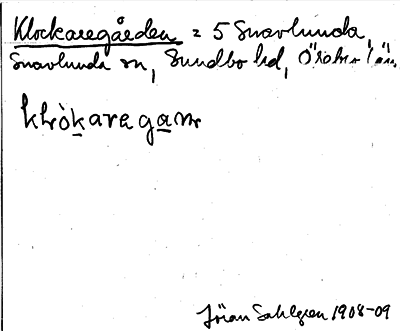 Klockaregården = 5 Snavlunda,
Snavlunda sn, Sundbo hd, Örebro län
Jöran Sahlgren 1908-09